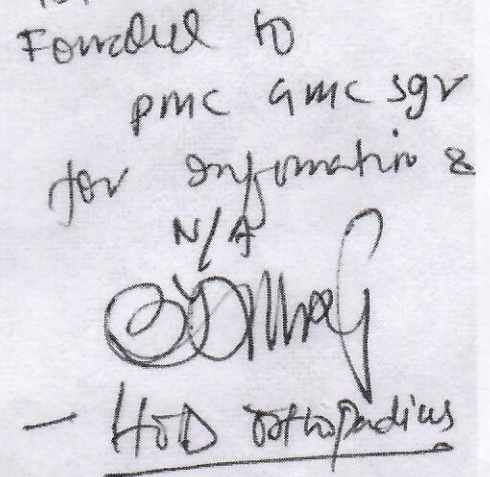 Forwarded to
PMC GMC sgr
for Information &
N/A
— HOD Orthopadics